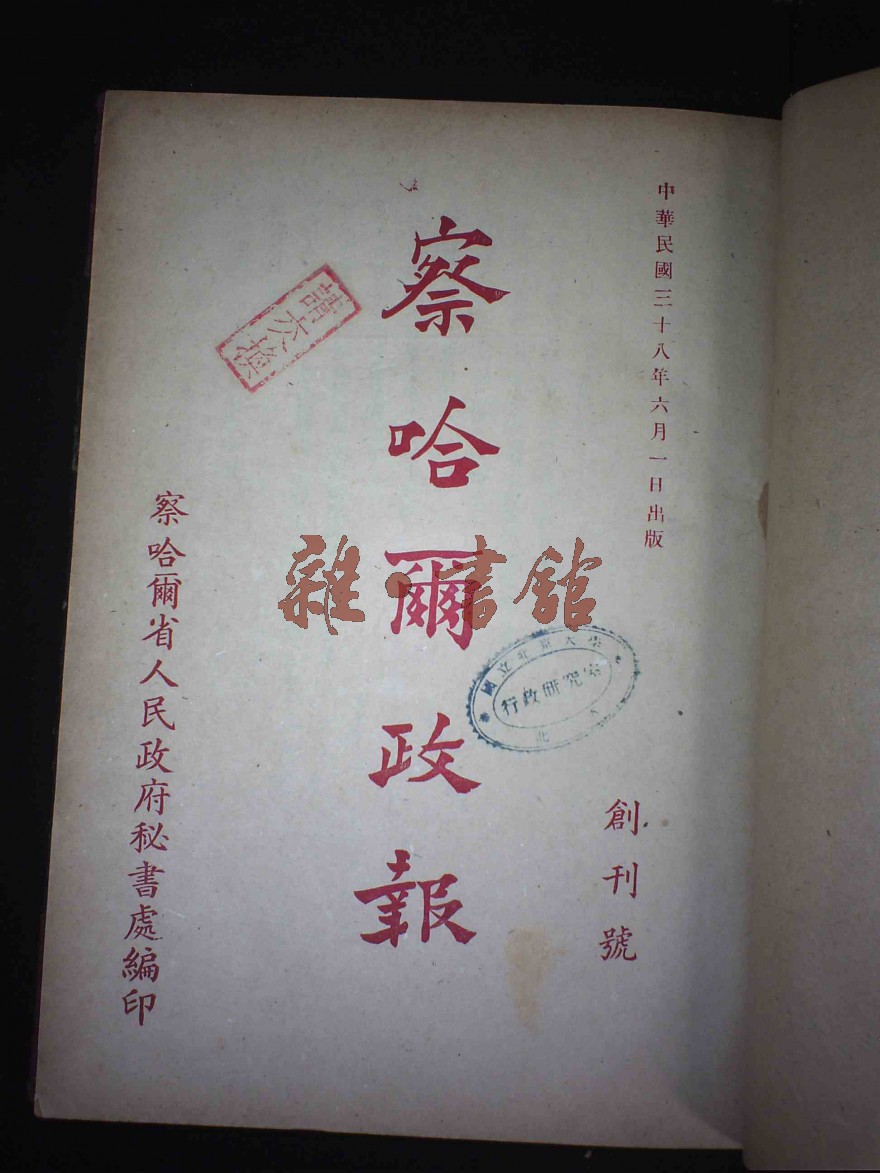 中華民國三十八年六月一日出版
創刊號
察哈爾政報
察哈爾省人民政府秘書處編印
請交換
國立北京大學
行政研究室
雜·書館